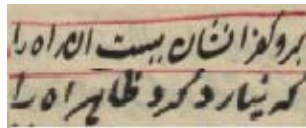 برو کزانشان ببست الله راه را
که نیارد کرد ظاهر راه را